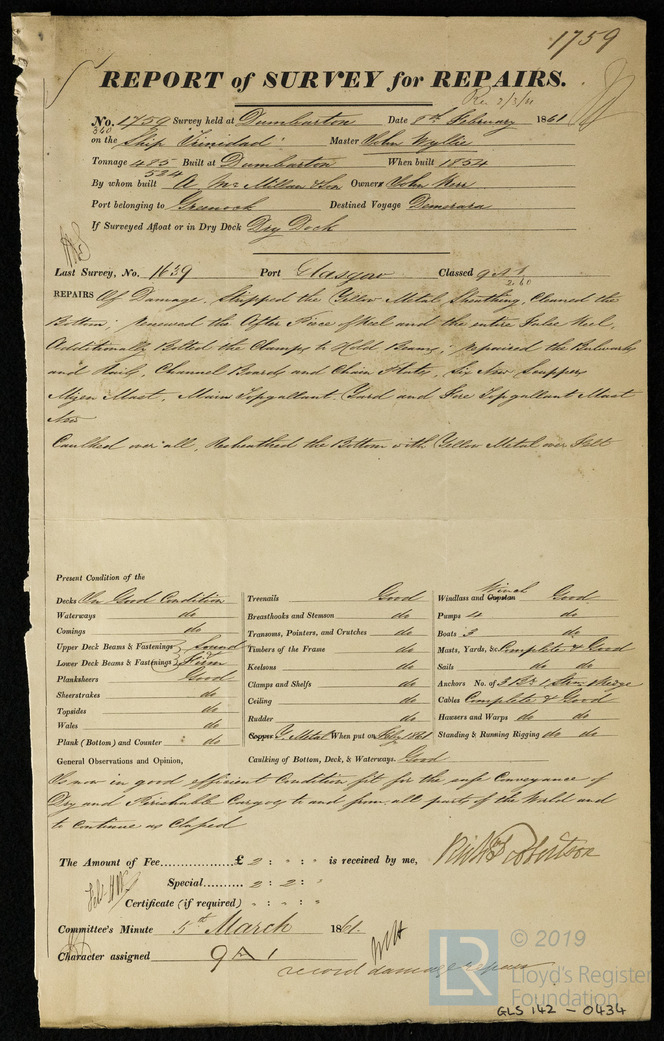 1759
REPORT of SURVEY for REPAIRS.
Rec 2/3/61
No. 1759 Survey held at Dumbarton Date 8th February 1861
340
on the Ship "Trinidad" Master John Wyllie
Tonnage 485 Built at Dumbarton When built 1854
524
By whom built A McMillan & Son Owners John Kerr
Port belonging to Greenock Destined Voyage Demerara
If Surveyed Afloat or in Dry Dock Dry Dock
Last Survey, No. 1639 Port Glasgow Classed 9 A 1
2.60
REPAIRS Of Damage. Stripped the Yellow Metal Sheathing, Cleaned the
Bottom; renewed the After Piece of Keel and the entire False Keel,
Additionally Bolted the Clamps to Hold Beams, repaired the Bulwarks
and Rails, Channel Boards and Chain Plates, Six New Scuppers
Mizen Mast, Main Topgallant Yard and Fore Topgallant Mast
New
Caulked over all, Resheathed the Bottom with Yellow Metal over Felt
Present Condition of the
Decks In Good Condition
Waterways do
Comings do
Upper Deck Beams & Fastenings Sound
Lower Deck Beams & Fastenings & Firm
Planksheers Good
Sheerstrakes do
Topsides do
Wales do
Plank (Bottom) and Counter do
Treenails Good
Breasthooks and Stemson do
Transoms, Pointers, and Crutches do
Timbers of the Frame do
Keelsons do
Clamps and Shelfs do
Ceiling do
Rudder do
Copper Y. Metal When put on Feby 1861
Caulking of Bottom, Deck, & Waterways. Good
Winch
Windlass and Capstan Good
Pumps 4 do
Boats 3 do
Masts, Yards, &c. Complete & Good
Sails do do
Anchors No. of 3 Br 1 Strm Kedge
Cables Complete & Good
Hawsers and Warps do do
Standing & Running Rigging do do
General Observations and Opinion,
Is now in good efficient Condition, fit for the safe Conveyance of
Dry and Perishable Cargoes to and from all parts of the World and
to Continue as Classed
The Amount of Fee £ 2 : " : " is received by me, Robertson
Special 2 : 2 : "
Certificate (if required) " : " : "
Committee's Minute 5th March 1861.
Character assigned 9 A 1
record damage repairs
LR
© 2019
Lloyd's Register
Foundation
GLS 142 - 0434